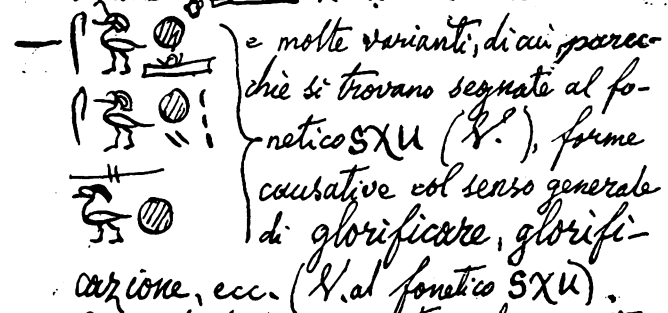 e molte varianti, di cui parec-
chie si trovano segnate al fo-
netico SXU (V.), forme
causative col senso generale
di glorificare, glorifi-
cazione, ecc. (V. al fonetico SXU).